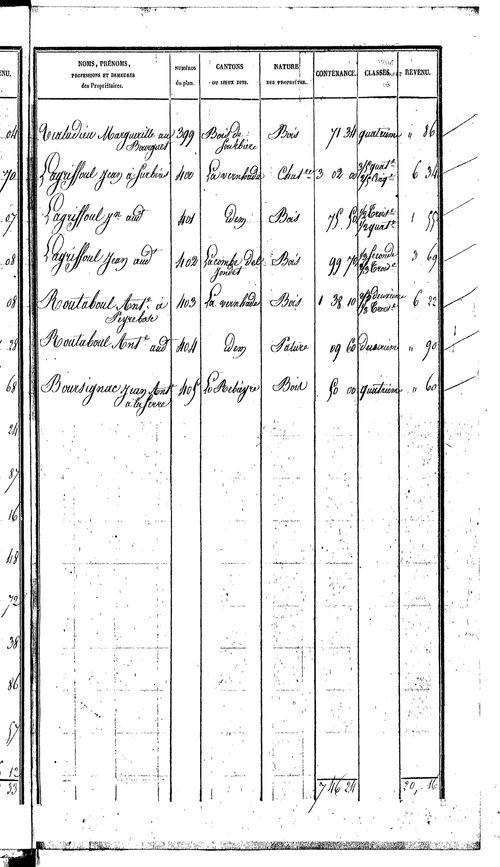 NOMS, PRÉNOMS, PROFESSIONS ET DEMEURES des Propriétaires. | NUMÉROS du plan. | CANTONS OU LIEUX DITS. | NATURE DES PROPRIÉTÉS. | CONTENANCE. | CLASSES. | REVENU.
Marguerite au Bourguet 399 Bois de Bois 71 34 quatrieme " 86
Lagriffoul Jean à 400 La vernhade Chat.re 3 02 00 6 34
Lagriffoul Jn audt 401 idem Bois 75 50 1/2 Trois.e 1/2 quat.e 1 55
Lagriffoul Jean audt 402 Lacombe Del Bois 99 70 Seconde Trois.e 3 69
Routaboul Ant.e à Peyrebose 403 La vernhade Bois 1 38 10 deuxieme Trois.e 6 22
Routaboul Ant.e audt 404 idem Pature 09 60 deuxieme " 90
Boursignac Jean Ant.e à la Serre 405 Bois 50 00 quatrieme " 60
7 46 24 20, 16
ENU.
04
70
07
08
08
28
68
24
87
16
48
72
38
86
57
12
33